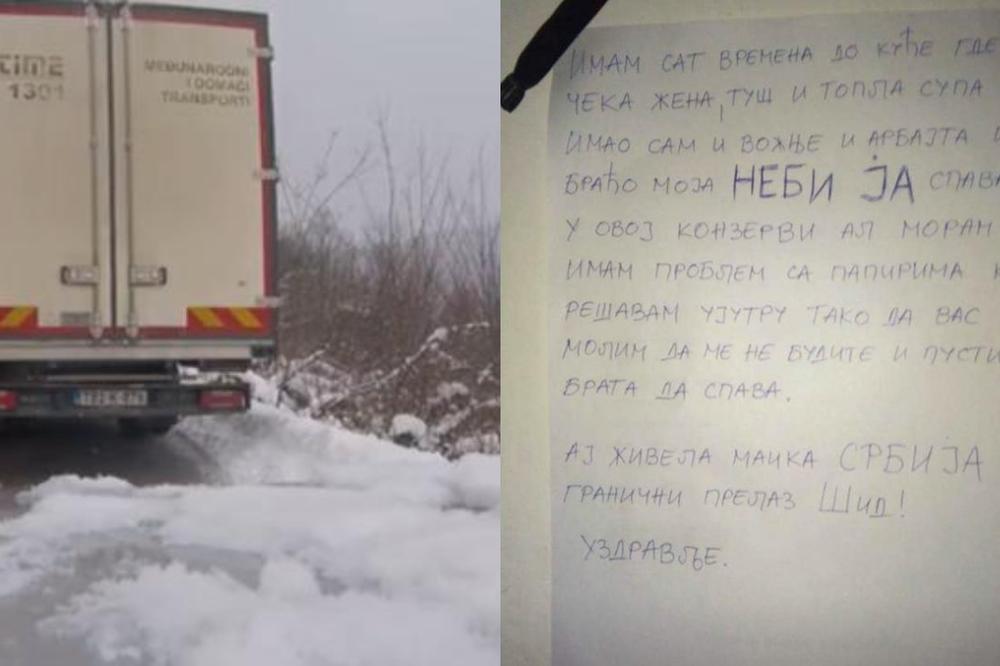 TIME
1301
MEĐUNARODNI
I DOMAĆI
TRANSPORTI
ИМАМ САТ ВРЕМЕНА ДО КУЋЕ ГДЕ
ЧЕКА ЖЕНА, ТУШ И ТОПЉА СУПА
ИМАО САМ И ВОЖЊЕ И АРБАЈТА
БРАЋО МОЈА НЕБИ ЈА СПАВА
У ОВОЈ КОНЗЕРВИ АЛ МОРАМ
ИМАМ ПРОБЛЕМ СА ПАПИРИМА
РЕШАВАМ УЈУТРУ ТАКО ДА ВАС
МОЛИМ ДА МЕ НЕ БУДИТЕ И ПУСТИ
БРАТА ДА СПАВА.
АЈ ЖИВЕЛА МАЈКА СРБИЈА
ГРАНИЧНИ ПРЕЛАЗ ШИД!
УЗДРАВЉЕ.